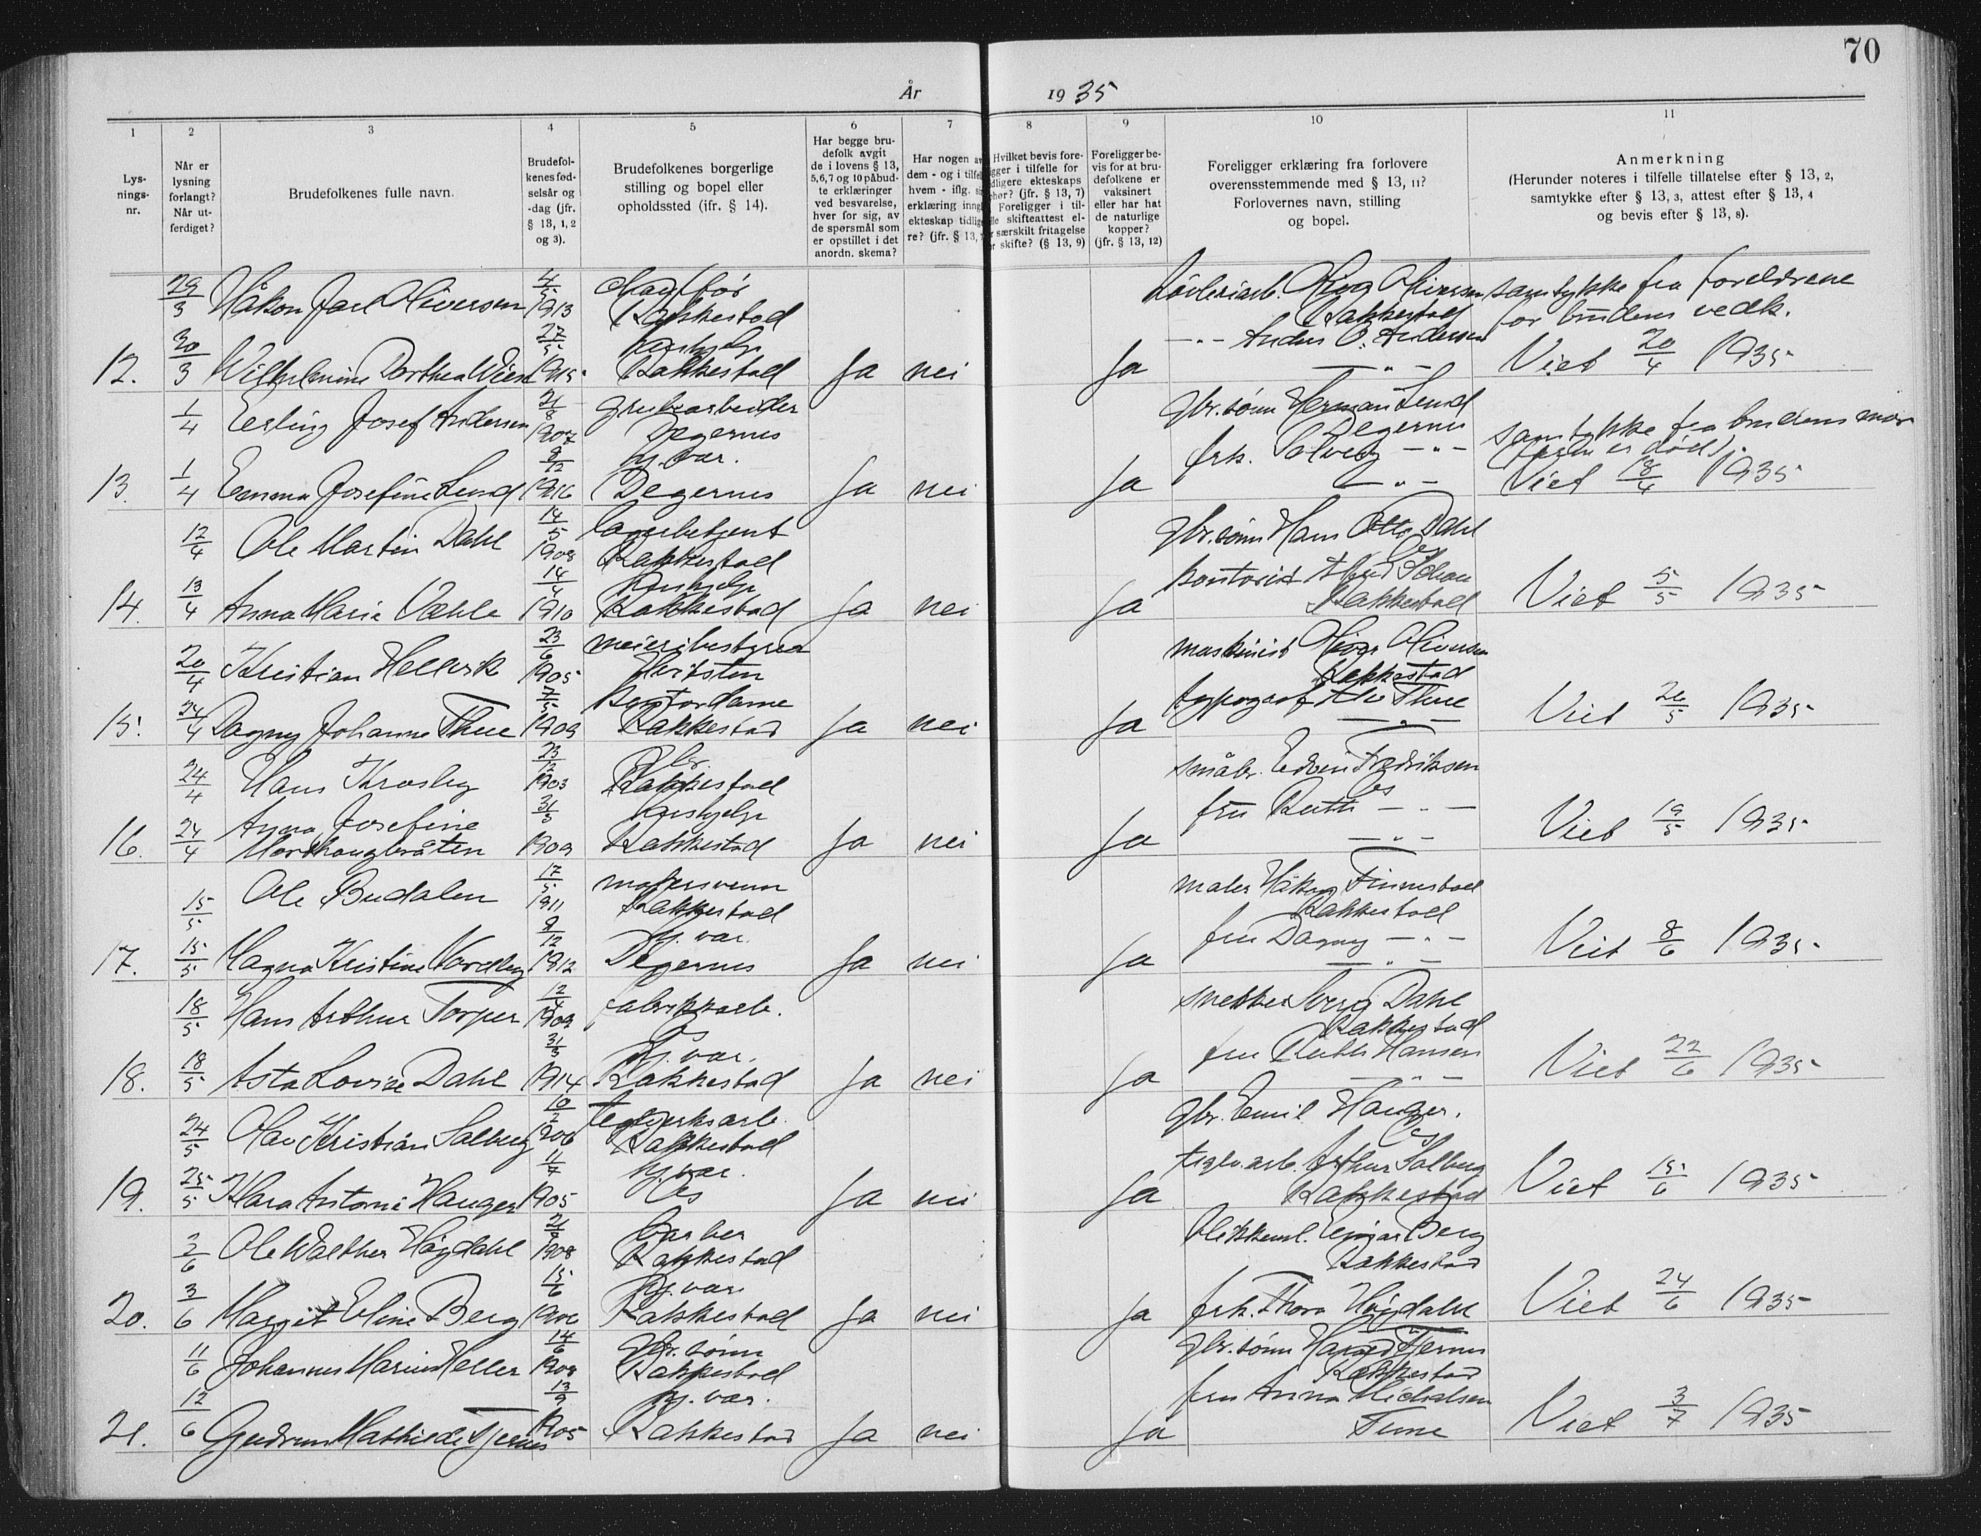 70
År 1935
1 2 3 4 5 6 7 8 9 10 11
Lys-
nings-
nr.
Når er
lysning
forlangt?
Når ut-
ferdiget?
Brudefolkenes fulle navn.
Brudefol-
kenes fød-
selsår og
-dag (jfr.
§ 13, 1, 2
og 3).
Brudefolkenes borgerlige
stilling og bopel eller
opholdssted (ifr. § 14).
Har begge bru-
defolk avgit
de i lovens § 13,
5,6,7 og 10 påbud-
te erklæringer
ved besvarelse,
hver for sig, av
de spørsmål som
er opstillet i det
anordn. skema?
Har nogen
dem - og i
hvem - iflg.
erklæring
ekteskap
re? (jfr. § 13,
Hvilket bevis fore-
i tilfelle for
ekteskaps
(jfr. § 13, 7)
Foreligger i til-
skifteattest el-
særskilt fritagelse
skifte? (§ 13, 9)
Foreligger be-
vis for at bru-
defolkene er
vaksinert
eller har hat
de naturlige
kopper?
(jfr. § 13, 12)
Foreligger erklæring fra forlovere
overensstemmende med § 13, 11?
Forlovernes navn, stilling
og bopel.
Anmerkning
(Herunder noteres i tilfelle tillatelse efter § 13, 2,
samtykke efter § 13, 3, attest efter § 13, 4
og bevis efter § 13, 8).
29/3 Håkon Jarl Oliversen 4/5 1913
Rakkestad
Oliversen
Rakkestad
samtykke fra foreldrene
for brudens vedk.
12. 30/3 Wilhelmine Dorthea 27/5 1915
hushjelp
Rakkestad Ja nei Ja
-"- Anders O. Andersen
-"-
Viet 20/4 1935
1/4 Erling Josef Andersen 21/8 1907
grubearbeider
Degernes
gbr.sønn Herman Lund
Degernes
samtykke fra brudens mor
(faren er død).
13. 1/4 Emma Josefine Lund 8/12 1916
hj.vær.
Degernes Ja nei Ja
frk. Solveig -"-
-"-
Viet 18/4 1935
12/4 Ole Martin Dahl 14/5 1908
Rakkestad
gbr.sønn Hans Otto Dahl
Es
14. 13/4 Anna Marie Væhle 14/4 1910
hushjelp
Rakkestad Ja nei Ja
kontorist
Rakkestad
Viet 5/5 1935
20/4 Kristian Hellvik 23/6 1905
meieribestyrer
Hvitsten
maskinist Oliversen
Rakkestad
15. 24/4 Dagny Johanne Thue 7/5 1909
kontordame
Rakkestad Ja nei Ja
typograf Thue
-"-
Viet 26/5 1935
24/4 Hans Krosby 23/12 1903
gbr.
Rakkestad
småbr. Edvin Fredriksen
Es
16. 24/4 Anna Josefine
31/3 1909
hushjelp
Rakkestad Ja nei Ja
fru Ruth -"-
-"-
Viet 19/5 1935
15/5 Ole Budalen 17/5 1911
malersvenn
Rakkestad
maler Håkon Finnestad
Rakkestad
17. 15/5 Magna Kristine Nordby 9/12 1912
hj.vær.
Degernes Ja nei Ja
fru Dagny -"-
-"-
Viet 8/6 1935
18/5 Hans Arthur Torper 12/4 1909
fabrikkarb.
Es
snekker Dahl
Rakkestad
18. 18/5 Asta Lovise Dahl 31/3 1914
hj.vær.
Rakkestad Ja nei Ja
fru Ruth Hansen
-"-
Viet 22/6 1935
24/5 Olav Kristian Solberg 10/2 1906
Teglverksarb.
Rakkestad
gbr. Emil Hauger.
Es
19. 25/5 Klara Antonie Hauger 11/7 1905
hj.vær.
Es Ja nei Ja
teglv.arb. Arthur Solberg
Rakkestad
Viet 15/6 1935
3/6 Ole Walther Høgdahl 21/9 1908
barber
Rakkestad
blikkensl. Einar Berg
Rakkestad
20. 3/6 Margit Eline Berg 15/6 1906
hj.vær.
Rakkestad Ja nei Ja
frk. Thora Høgdahl
Viet 24/6 1935
11/6 Johannes Marius Heller 14/6 1908
gbr.sønn
Rakkestad
gbr.sønn Tjernes
Rakkestad
21. 12/6 Gudrun Mathilde Tjernes 13/9 1905
hj.vær.
Rakkestad Ja nei Ja
fru Anna Michalsen
Viet 3/7 1935